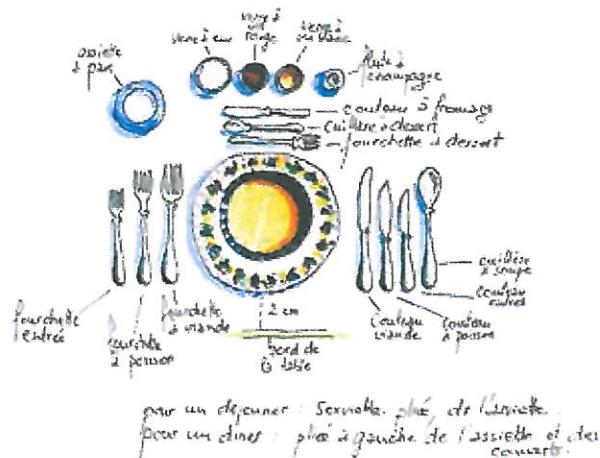 assiette
à pain
verre à eau
verre à
vin
rouge
verre à
vin blanc
flute à
champagne
couteau à fromage
cuillère à dessert
fourchette à dessert
fourchette
entrée
fourchette
à poisson
fourchette
à viande
2 cm
bord de
la table
couteau
viande
couteau
à poisson
couteau
entrée
cuillère
à soupe
pour un déjeuner : Serviette pliée, de l'assiette.
pour un diner : pliée à gauche de l'assiette et des
couverts.